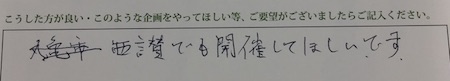 こうした方が良い・このような企画をやってほしい等、ご要望がございましたらご記入ください。
西讃でも開催してほしいです